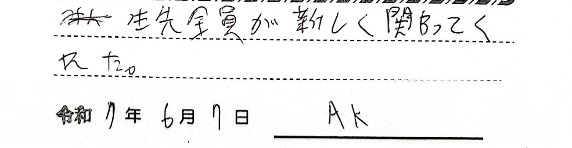 生先全員が新しく関わってく
れた。
令和7年6月7日 AK